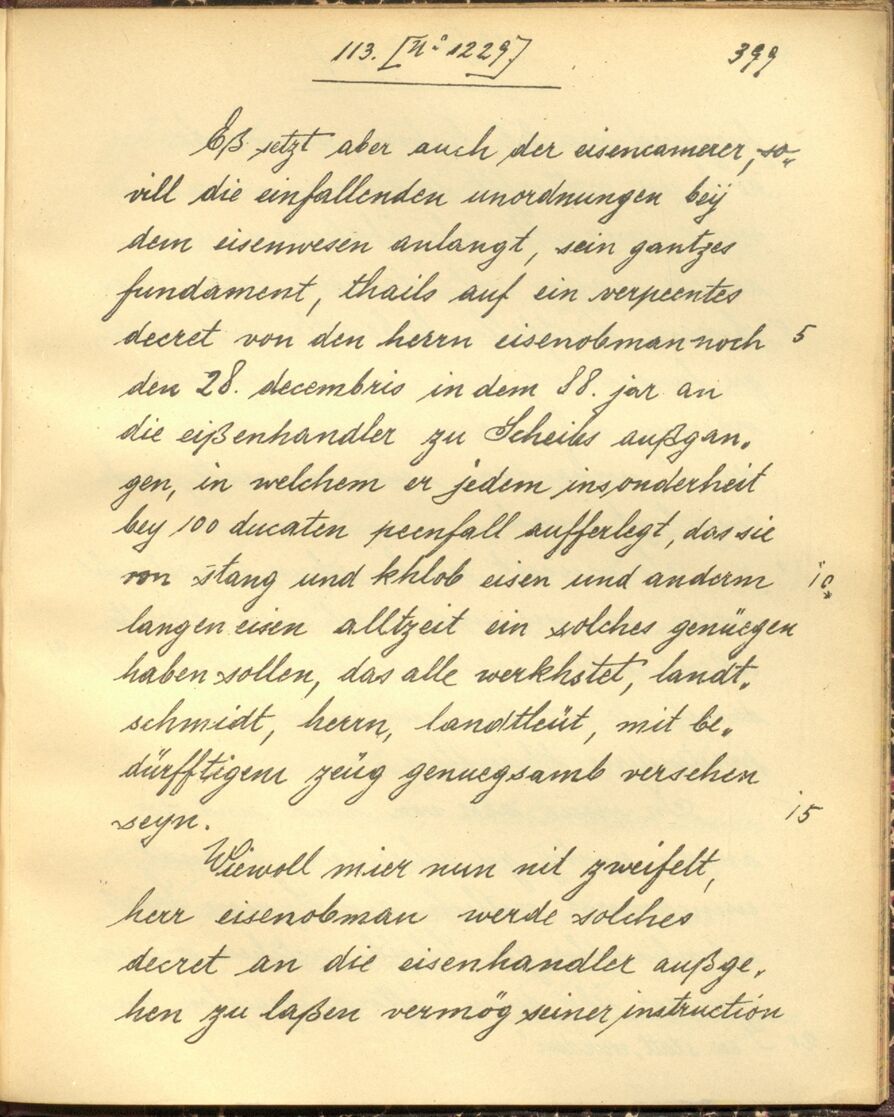 113. [No 1229.]
399
Eß setzt aber auch der eisencamerer, so„
vill die einfallenden unordnungen beÿ
dem eisenwesen anlangt, sein gantzes
fundament, thails auf ein verpeentes
decret von den herrn eisenobman noch 5
den 28. decembris in dem 88. jar an
die eißenhandler zu Scheibs außgan„
gen, in welchem er jedem insonderheit
bey 100 ducaten peenfall aufferlegt, das sie
von stang und khlob eisen und anderm 10
langen eisen alltzeit ein solches genüegen
haben sollen, das alle werkhstet, landt„
schmidt, herrn, landtleüt, mit be„
dürfftigem zeüg genuegsamb versehen
seyn. 15
Wiewoll mier nun nit zweifelt,
herr eisenobman werde solches
decret an die eisenhandler außge„
hen zu laßen vermög seiner instruction